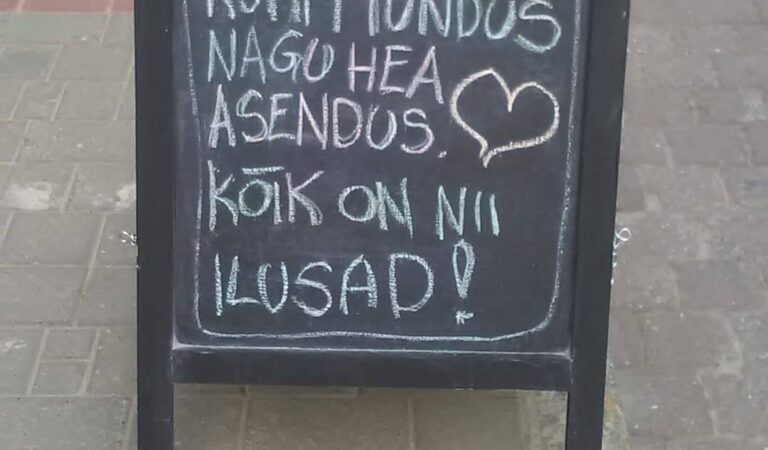 NAGU HEA
ASENDUS.
KÕIK ON NII
ILUSAD!